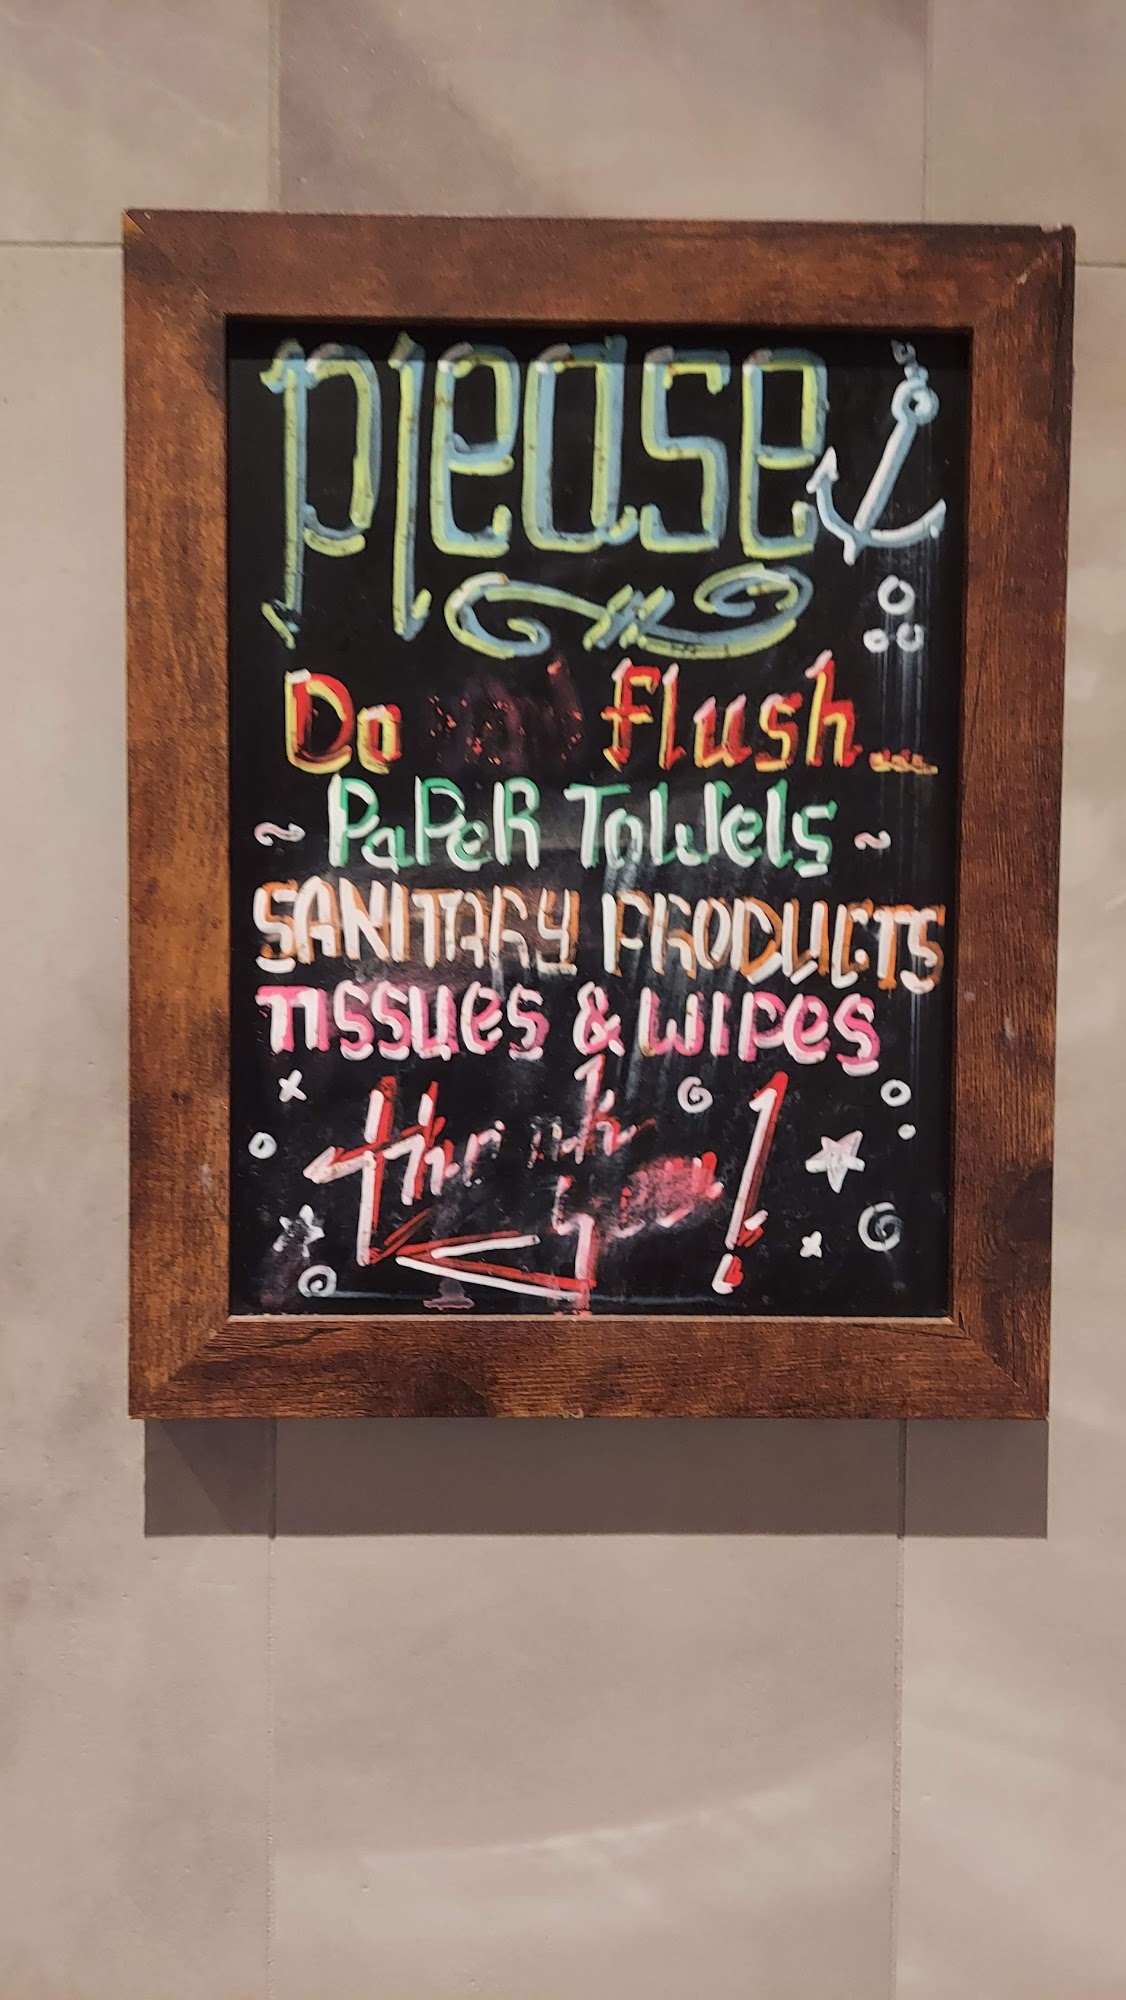 please
Do flush...
PaPeR Towels
SANITARY PRODUCTS
TISSUes & WIPes
thank
you!